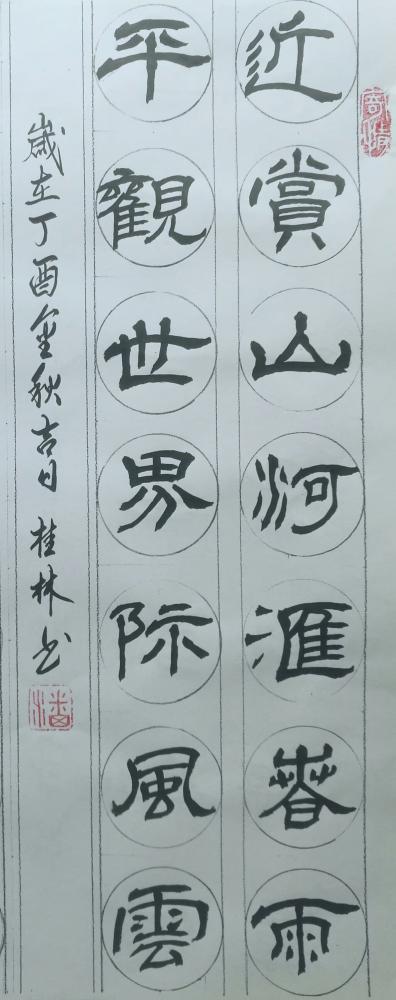 近賞山河滙春雨
平觀世界际風雲
歲在丁酉金秋吉日桂林书